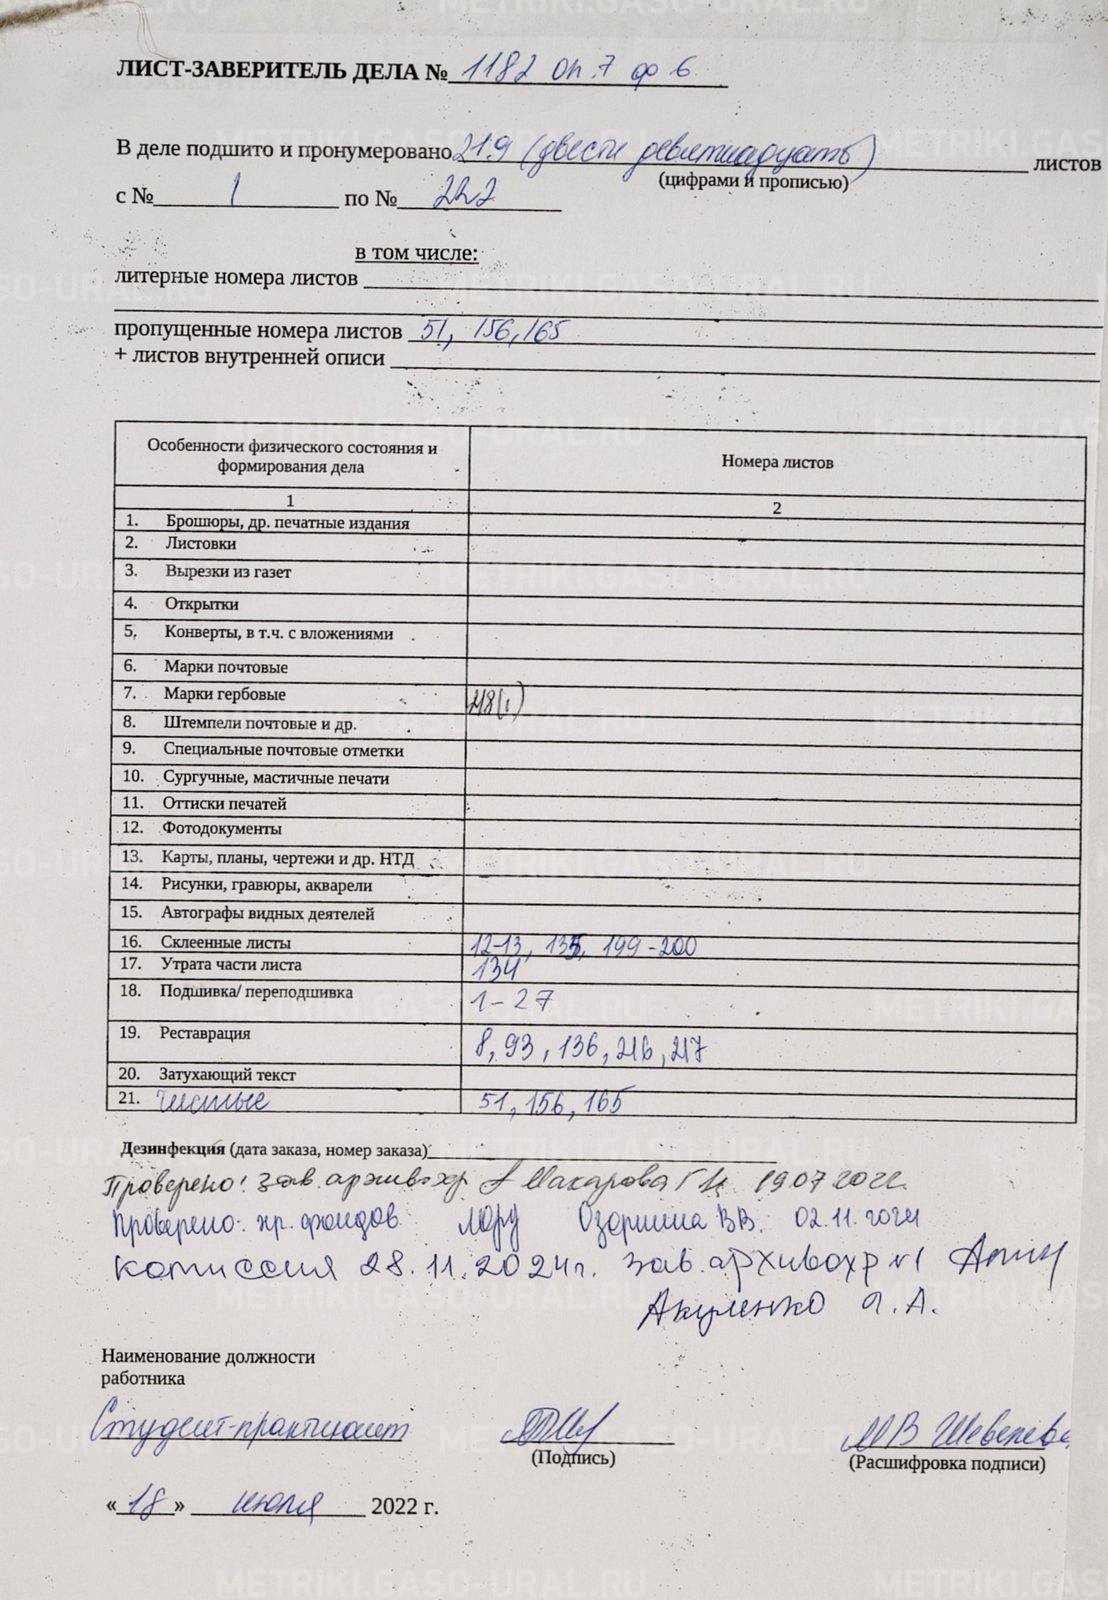 ЛИСТ-ЗАВЕРИТЕЛЬ ДЕЛА № 1182 оп.7 ф 6
В деле подшито и пронумеровано 219 (двести девятнадцать) листов
(цифрами и прописью)
с № 1 по № 222
в том числе:
литерные номера листов
пропущенные номера листов 51, 156, 165
+ листов внутренней описи
Особенности физического состояния и формирования дела Номера листов
1 2
1. Брошюры, др. печатные издания
2. Листовки
3. Вырезки из газет
4. Открытки
5. Конверты, в т.ч. с вложениями
6. Марки почтовые
7. Марки гербовые 218(1)
8. Штемпели почтовые и др.
9. Специальные почтовые отметки
10. Сургучные, мастичные печати
11. Оттиски печатей
12. Фотодокументы
13. Карты, планы, чертежи и др. НТД
14. Рисунки, гравюры, акварели
15. Автографы видных деятелей
16. Склеенные листы 12-13, 135, 199-200
17. Утрата части листа 134
18. Подшивка/ переподшивка 1-27
19. Реставрация 8, 93, 136, 216, 217
20. Затухающий текст
21. Чистые 51, 156, 165
Дезинфекция (дата заказа, номер заказа)
Проверено: зав. архивохр Макарова 19.07.2022
Проверено: хр. фондов В.В. 02.11.2024
комиссия 28.11.2024г. зав. архивохр №1
Акуленко А.
Наименование должности
работника
Студент-практикант МВ Шевелева
(Подпись) (Расшифровка подписи)
«18» июля 2022 г.
METRIKI.GASO-URAL.RU